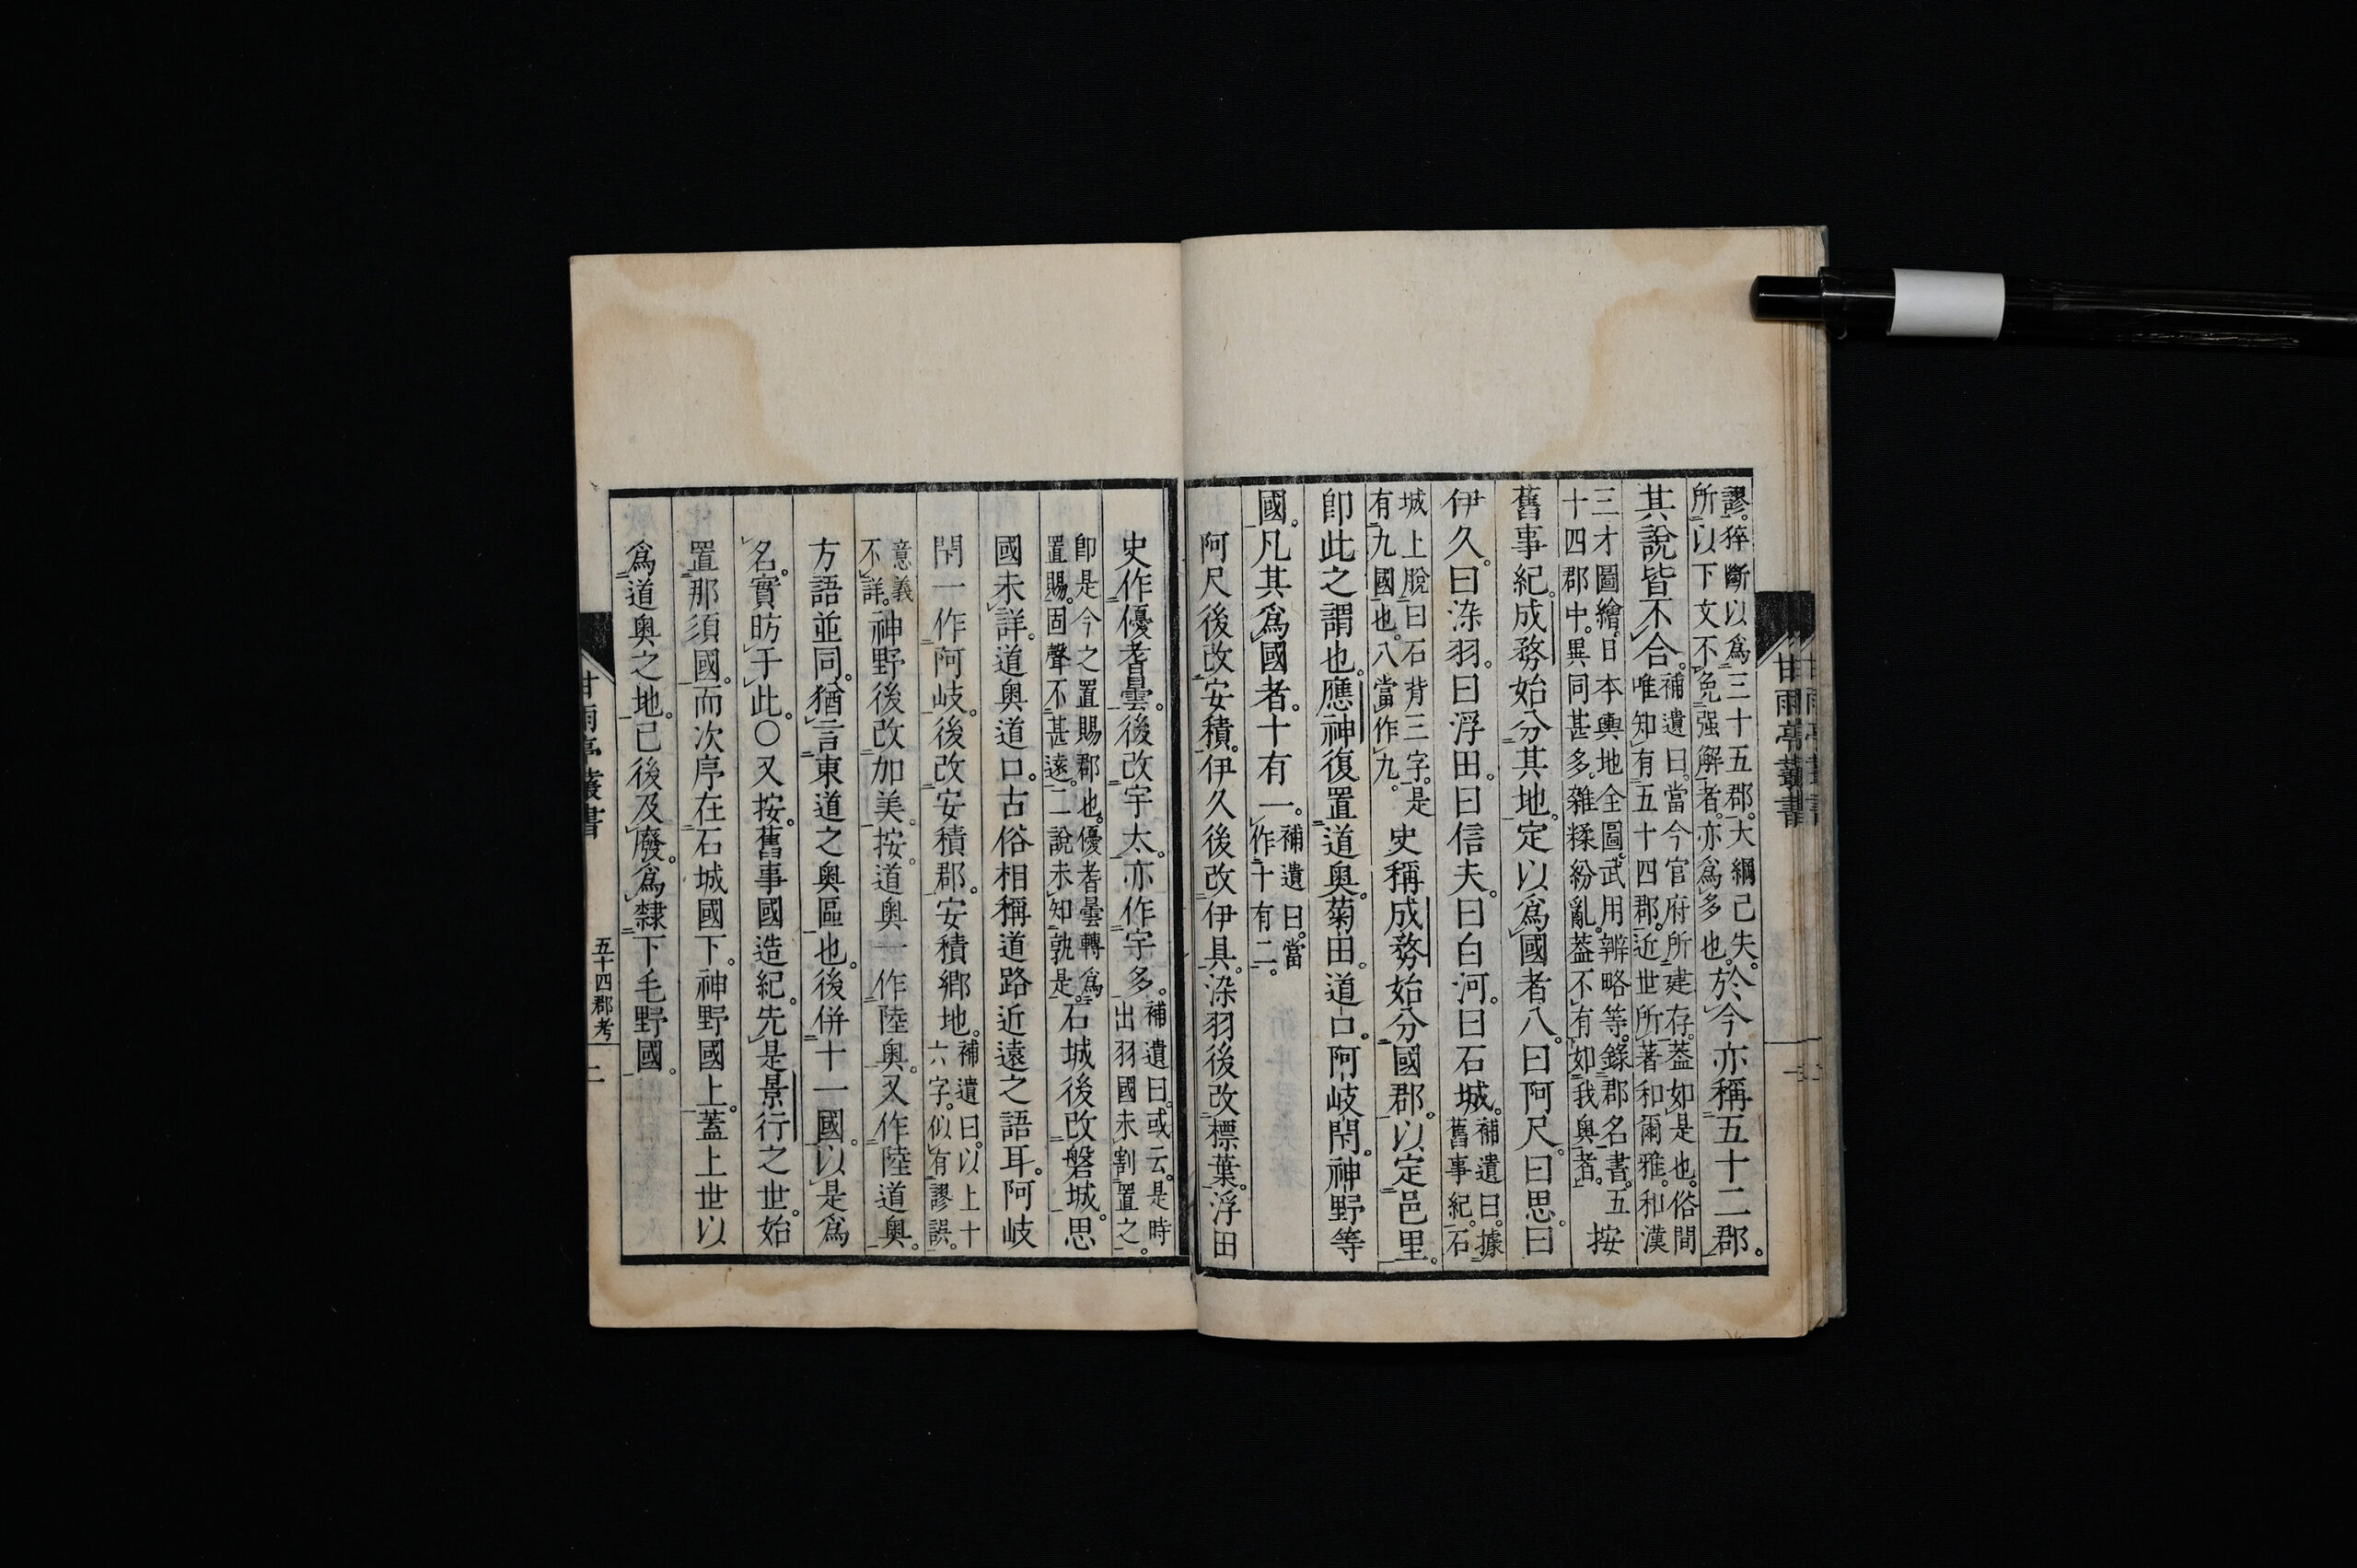 謬。猝斷以爲三十五郡。大綱已失。
所以下文不免强解者。亦爲多也。於今亦稱五十二郡。
其說皆不合。補遺曰。當今官府所建存。蓋如是也。俗間
唯知有五十四郡。近世所著和爾雅。和漢
三才圖繪。日本輿地全圖。武用辨略等。錄郡名書。五
十四郡中。異同甚多。雜糅紛亂。蓋不有如我奥者。按
舊事紀。成務始分其地。定以爲國者八。曰阿尺。曰思。曰
伊久。曰染羽。曰浮田。曰信夫。曰白河。曰石城。補遺曰。據
舊事紀。石
城上脫曰石背三字。是
有九國也。八當作九。史稱成務始分國郡。以定邑里。
卽此之謂也。應神復置道奥。菊田。道口。阿岐閇。神野等
國。凡其爲國者。十有一。補遺曰。當
作十有二。
阿尺後改安積。伊久後改伊具。染羽後改標葉。浮田
史作優耆曇。後改宇太。亦作宇多。補遺曰。或云。是時
出羽國未割置之。
卽是今之置賜郡也。優耆曇轉爲
置賜。固聲不甚遠。二說未知孰是。石城後改磐城。思
國未詳。道奥道口。古俗相稱道路近遠之語耳。阿岐
閇一作阿岐。後改安積郡。安積鄉地。補遺曰。以上十
六字。似有謬誤。
意義
不詳。神野後改加美。按。道奥一作陸奥。又作陸道奥。
方語並同。猶言東道之奥區也。後併十一國。以是爲
名。實昉于此。〇又按。舊事國造紀。先是景行之世。始
置那須國。而次序在石城國下。神野國上。蓋上世以
爲道奥之地。已後及廢。爲隸下毛野國。
甘雨亭叢書
五十四郡考
二
甘雨亭叢書